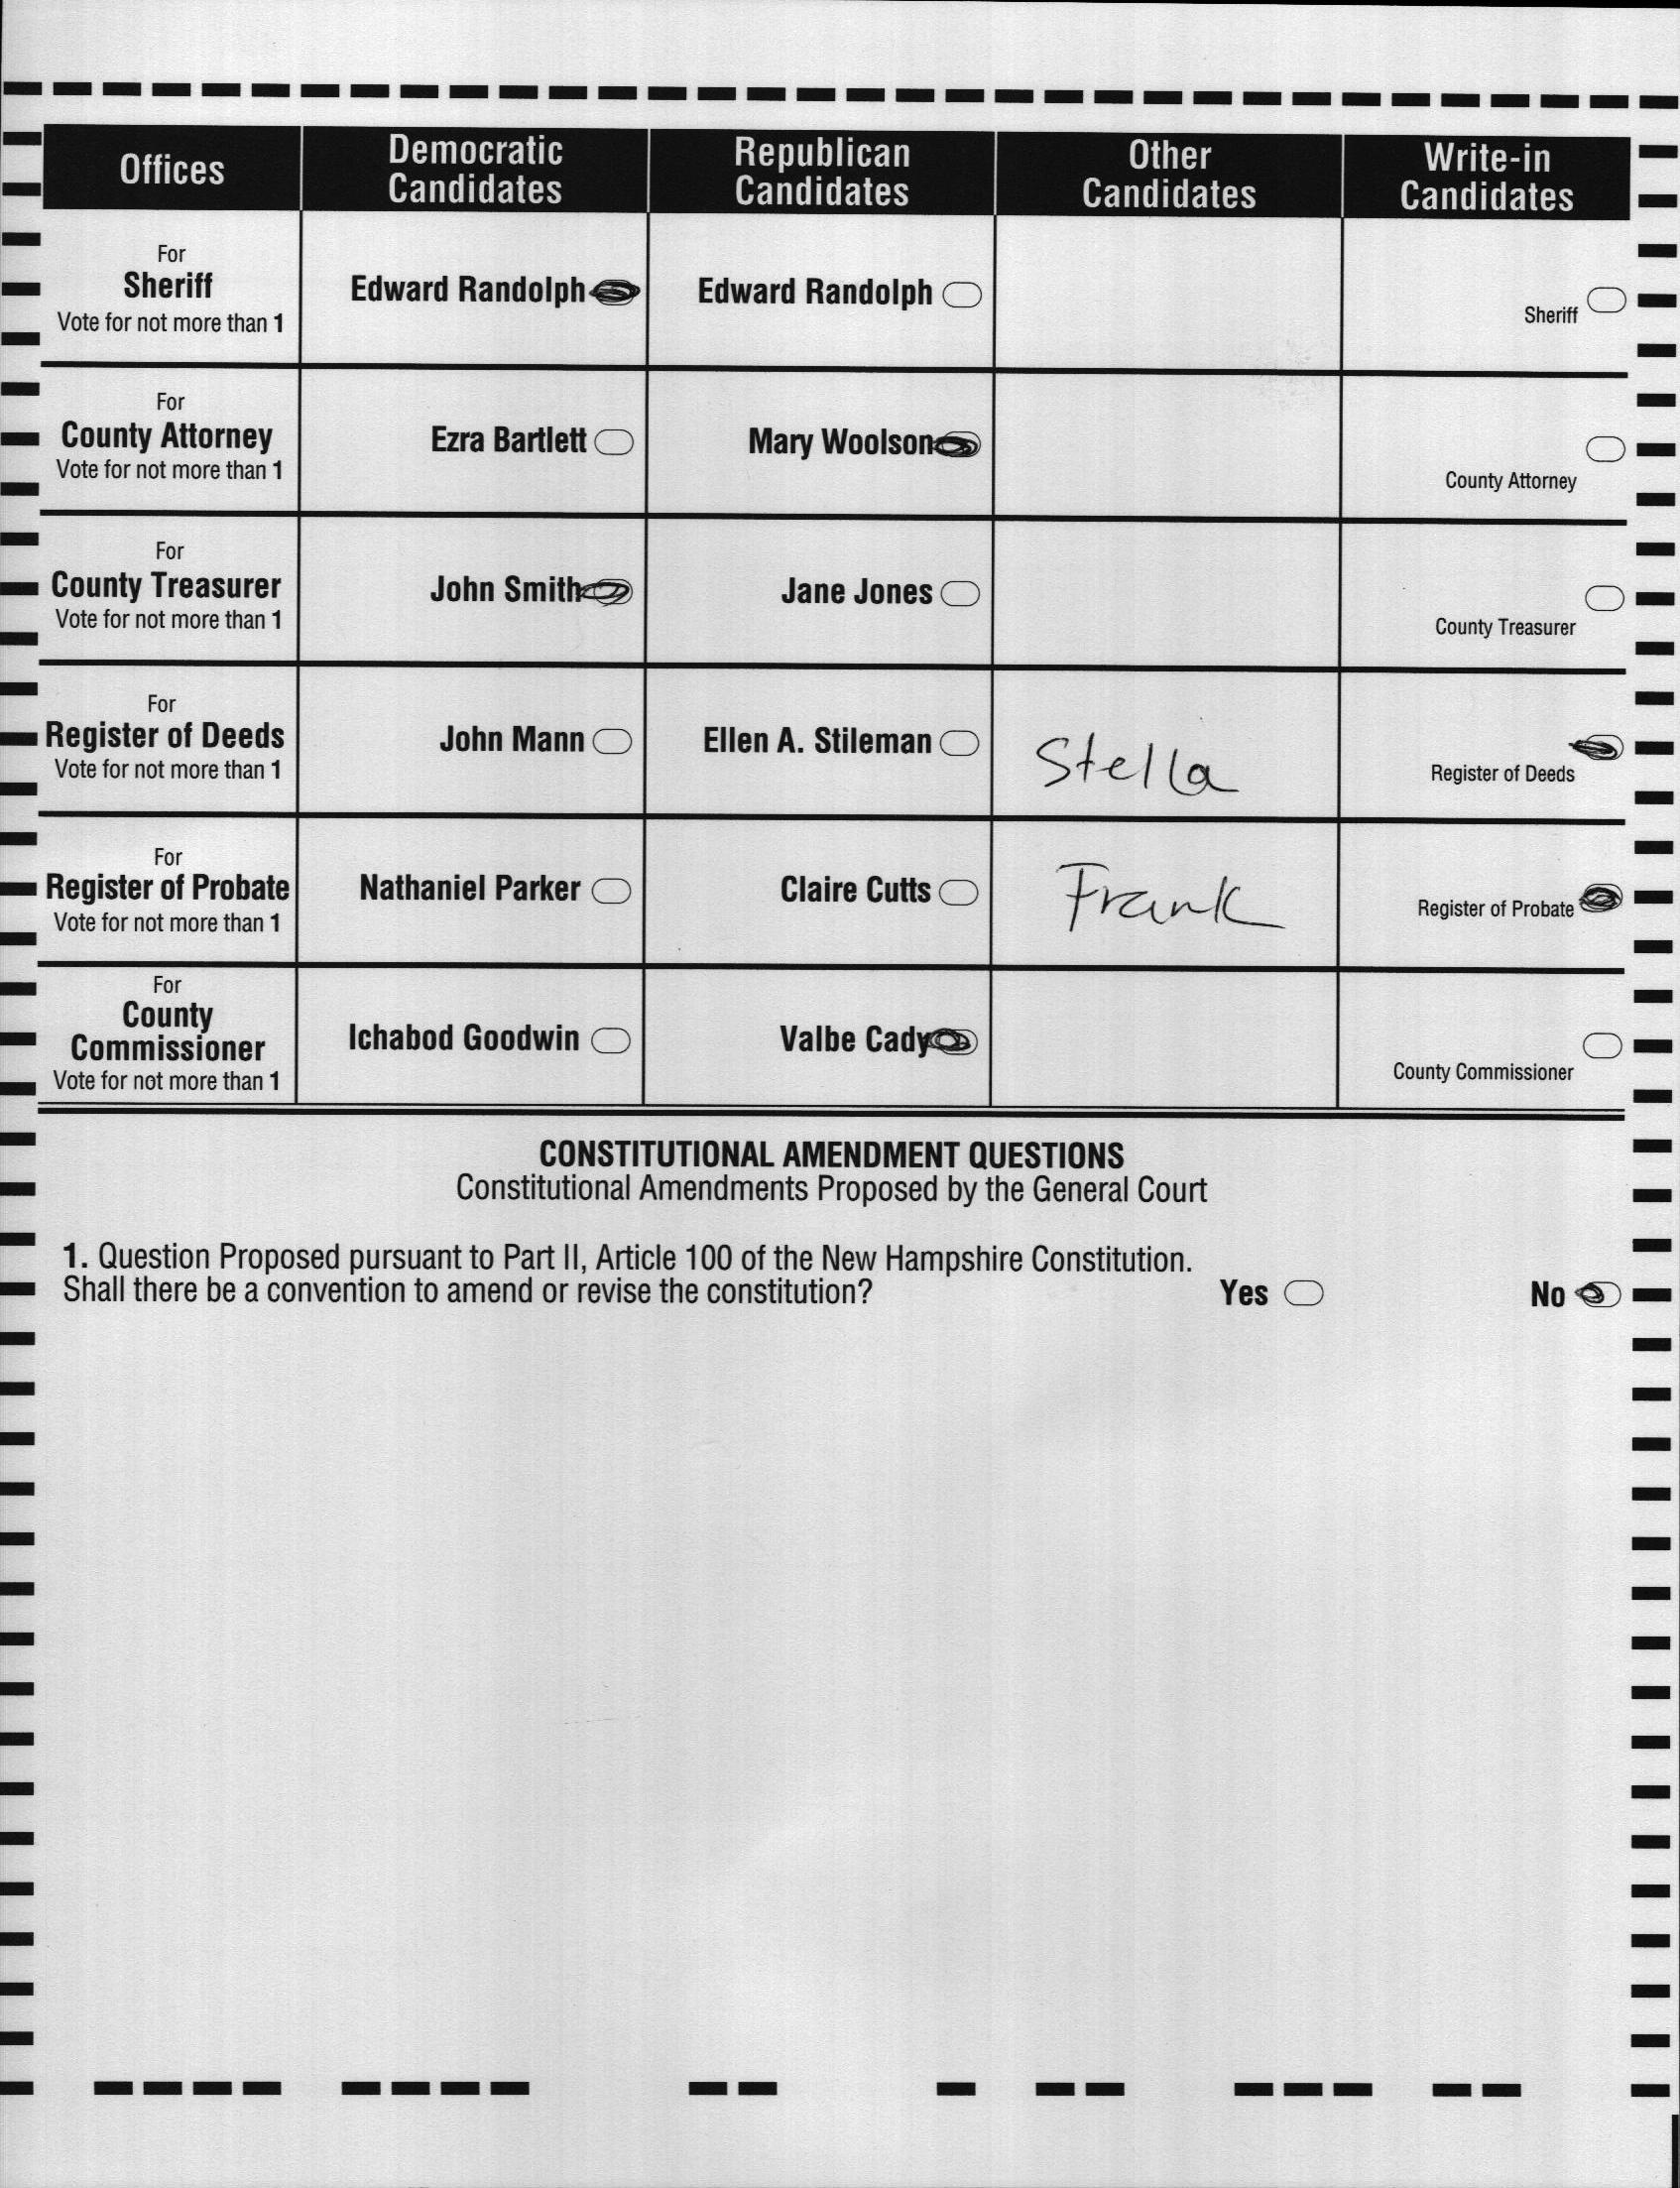 Offices
Democratic
Candidates
Republican
Candidates
Other
Candidates
Write-in
Candidates
For
Sheriff
Vote for not more than 1
Edward Randolph
Edward Randolph
Sheriff
For
County Attorney
Vote for not more than 1
Ezra Bartlett
Mary Woolson
County Attorney
For
County Treasurer
Vote for not more than 1
John Smith
Jane Jones
County Treasurer
For
Register of Deeds
Vote for not more than 1
John Mann
Ellen A. Stileman
Stella
Register of Deeds
For
Register of Probate
Vote for not more than 1
Nathaniel Parker
Claire Cutts
Frank
Register of Probate
For
County
Commissioner
Vote for not more than 1
Ichabod Goodwin
Valbe Cady
County Commissioner
CONSTITUTIONAL AMENDMENT QUESTIONS
Constitutional Amendments Proposed by the General Court
1. Question Proposed pursuant to Part II, Article 100 of the New Hampshire Constitution.
Shall there be a convention to amend or revise the constitution?
Yes
No